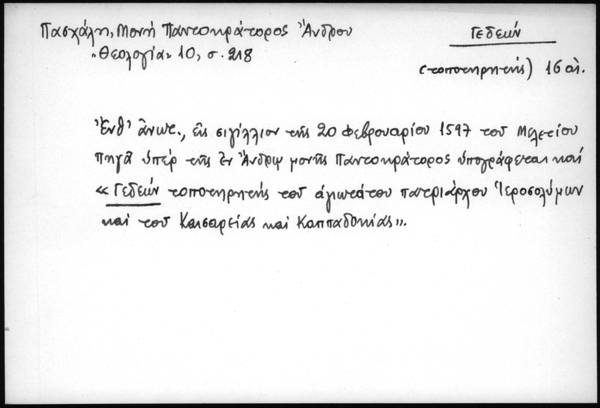 Πασχάλη, Μονή Παντοκράτορος Ἄνδρου
Γεδεών
«Θεολογία» 10, σ. 218
(τοποτηρητής) 16 αἰ.
Ἔνθ' ἄνωτ., εἰς σιγίλλιον τῆς 20 Φεβρουαρίου 1597 τοῦ Μελετίου
Πηγᾶ ὑπέρ τῆς ἐν Ἄνδρῳ μονῆς Παντοκράτορος ὑπογράφεται καί
«Γεδεών τοποτηρητής τοῦ ἁγιωτάτου πατριάρχου Ἱεροσολύμων
καί τοῦ Καισαρείας καί Καππαδοκίας».